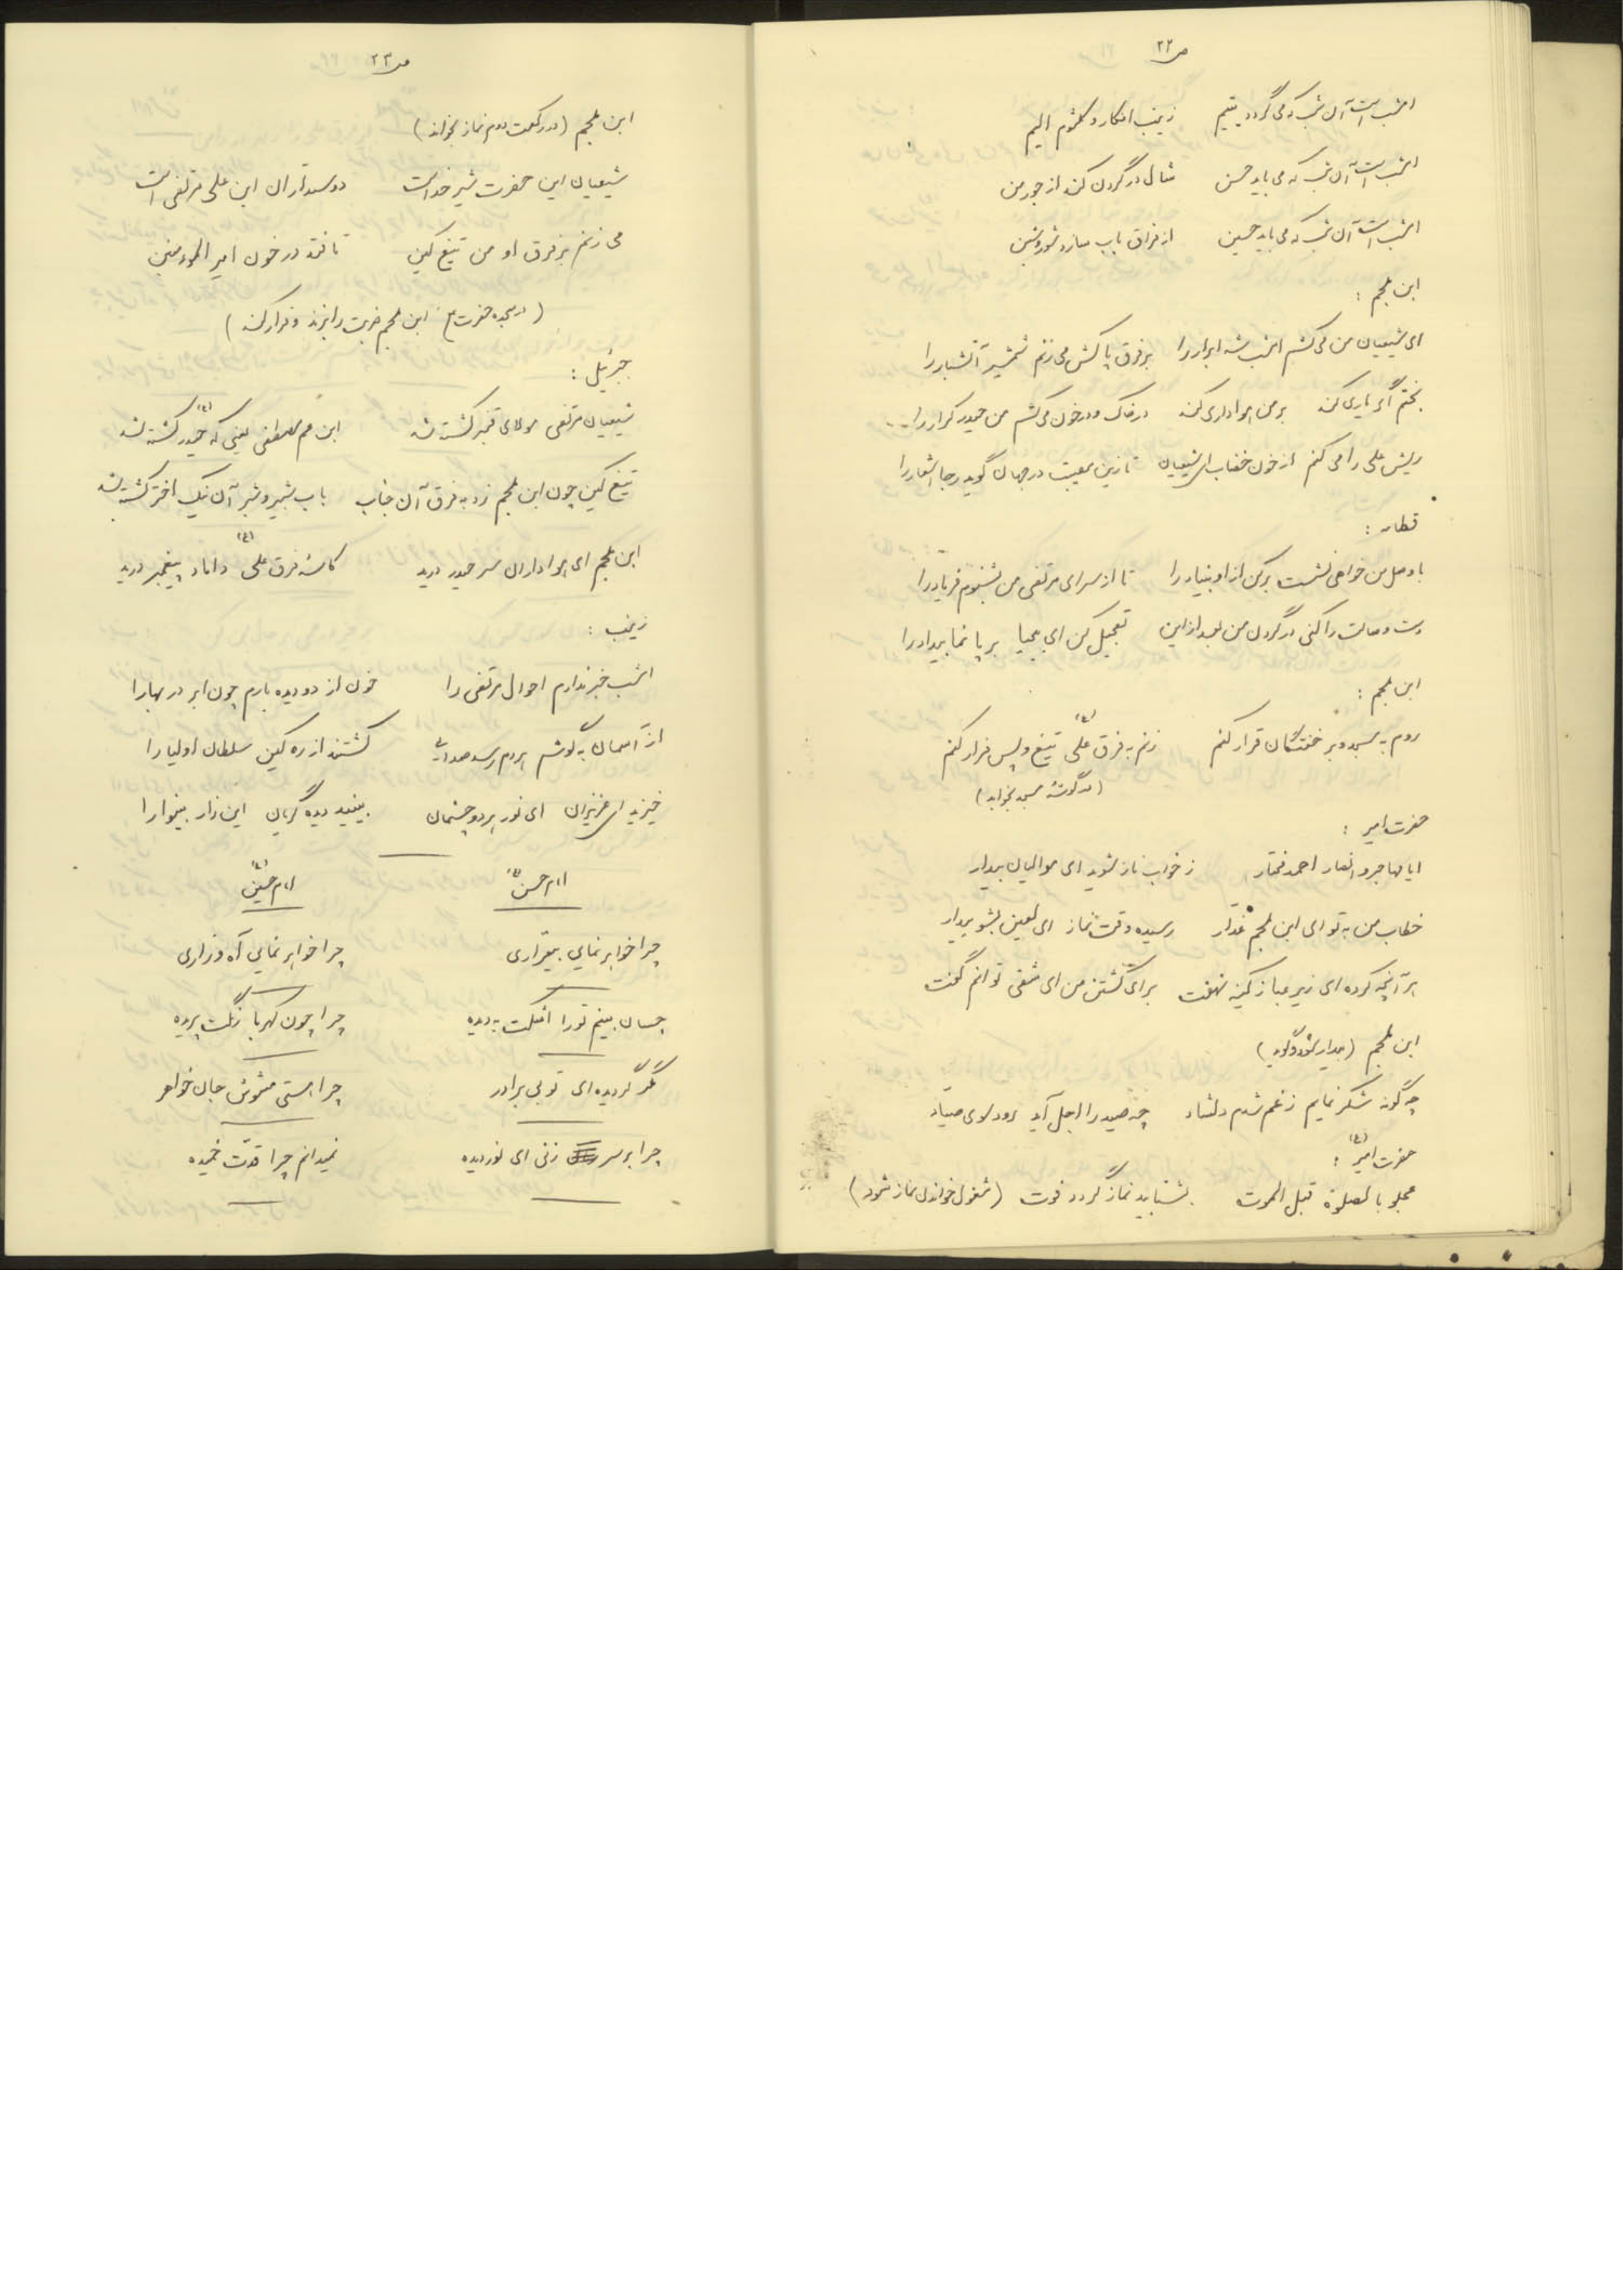 ص ۲۲
امشب است آن شب که می گردد یتیم زینب افکار و کلثوم الیم
امشب است آن شب که می باید حسن شال در گردن کند از جور من
امشب است آن شب که می باید حسین از فراق باب سازد شور و شین
ابن ملجم :
ای شیعیان من می کشم امشب شه ابرار را بر فرق پاکش می زنم شمشیر آتشبار را
بختم اگر یاری کند بر من هواداری کند در خاک و در خون می کشم من حیدر کرار را...
ریش علی را می کنم از خون خضاب ای شیعیان تا زین مصیبت در جهان گوید رجا اشعار را
قطامه :
با وصل من خواهی نشست برکن از او بنیاد را تا از سرای مرتضی من بشنوم فریاد را
دست وصالت را کنی در گردن من بعد از این تعجیل کن ای بی حیا بر پا نما بیداد را
ابن ملجم :
روم به مسجد و بر خفتگان قرار کنم زنم به فرق علی (ع) تیغ و پس فرار کنم
(در گوشه مسجد بخوابد)
حضرت امیر :
ایا مهاجر و انصار احمد مختار ز خواب ناز شوید ای موالیان بیدار
خطاب من به تو ای ابن ملجم غدّار رسیده وقت نماز ای لعین بشو بیدار
هر آنچه کرده ای زیر عبا ز کینه نهفت برای کشتن من ای شقی توانم گفت
ابن ملجم (بیدار شود و گوید)
چه گونه شکر نمایم ز غم شدم دلشاد چه صید را اجل آید رود سوی صیّاد
حضرت امیر (ع) :
عجلو بالصلوة قبل الموت بشتابید نماز گردد فوت (مشغول خواندن نماز شود)
ص ۲۳
ابن ملجم (در رکعت دوم نماز بخواند)
شیعیان این حضرت شیر خداست دوستداران این علی مرتضی است
می زنم بر فرق او من تیغ کین تا فتد در خون امیر المؤمنین
(در سجده حضرت ع ابن ملجم ضربت را بزند و فرار کند)
جبرئیل :
شیعیان مرتضی مولای قنبر کشته شد ابن عم مصطفی یعنی که حیدر (ع) کشته شد
تیغ کین چون ابن ملجم زد به فرق آن جناب باب شبیر و شبر آن نیک اختر کشته شد
ابن ملجم ای هواداران سر حیدر درید کاسه فرق علی (ع) داماد پیغمبر درید
زینب :
امشب خبر ندارم احوال مرتضی را خون از دو دیده بارم چون ابر در بهارا
از آسمان به گوشم هر دم رسد صدائی کشتند از ره کین سلطان اولیا را
خیزید ای عزیزان ای نور هر دو چشمان بینید دیده گریان این زار بینوا را
امام حسن (ع) امام حسین (ع)
چرا خواهر نمایی بیقراری چرا خواهر نمایی آه و زاری
چسان بینم تو را اشکت به دیده چرا چون کهربا رنگت پریده
مگر گردیده ای تو بی برادر چرا هستی مشوش جان خواهر
چرا بر سر زنی ای نور دیده نمیدانم چرا قدّت خمیده